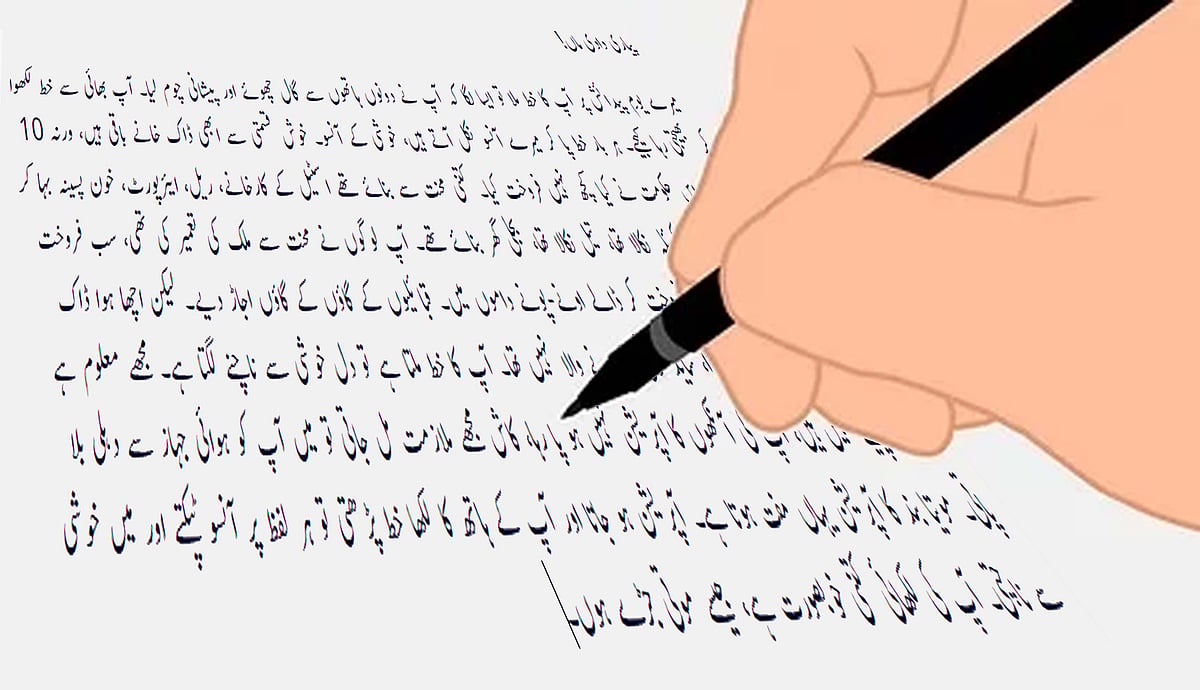 پیاری دادی ماں!
میرے یوم پیدائش پر آپ کا خط ملا تو ایسا لگا کہ آپ نے دونوں ہاتھوں سے گال چھوئے اور پیشانی چوم لیا۔ آپ بھائی سے خط لکھوا
کر بھیجتی رہا کیجیے۔ ہر بار خط پا کر میرے آنسو نکل آتے ہیں، خوشی کے آنسو۔ خوش قسمتی سے ابھی ڈاک خانے باقی ہیں، ورنہ 10
میں حکومت نے کیا کچھ نہیں فروخت کیا۔ کتنی محنت سے بنائے تھے اسٹیل کے کارخانے، ریل، ایئرپورٹ، خون پسینہ بہا کر
نکالا تھا، تیل نکالا تھا، بجلی گھر بنائے تھے۔ آپ لوگوں نے محنت سے ملک کی تعمیر کی تھی، سب فروخت
کر ڈالے اونے-پونے داموں میں۔ قبائلیوں کے گاؤں کے گاؤں اجاڑ دیے۔ لیکن اچھا ہوا ڈاک
والا نہیں تھا۔ آپ کا خط ملتا ہے تو دل خوشی سے ناچنے لگتا ہے۔ مجھے معلوم ہے
نہیں ہیں، آپ کی آنکھوں کا آپریشن نہیں ہو پا رہا، کاش مجھے ملازمت مل جاتی تو میں آپ کو ہوائی جہاز سے دہلی بلا
پاتی۔ موتیا بند کا آپریشن یہاں مفت ہوتا ہے۔ آپریشن ہو جاتا اور آپ کے ہاتھ کا لکھا خط پڑھتی تو ہر لفظ پر آنسو ٹپکتے اور میں خوشی
سے ناچتی۔ آپ کی لکھائی کتنی خوبصورت ہے، جیسے موتی جڑے ہوں۔